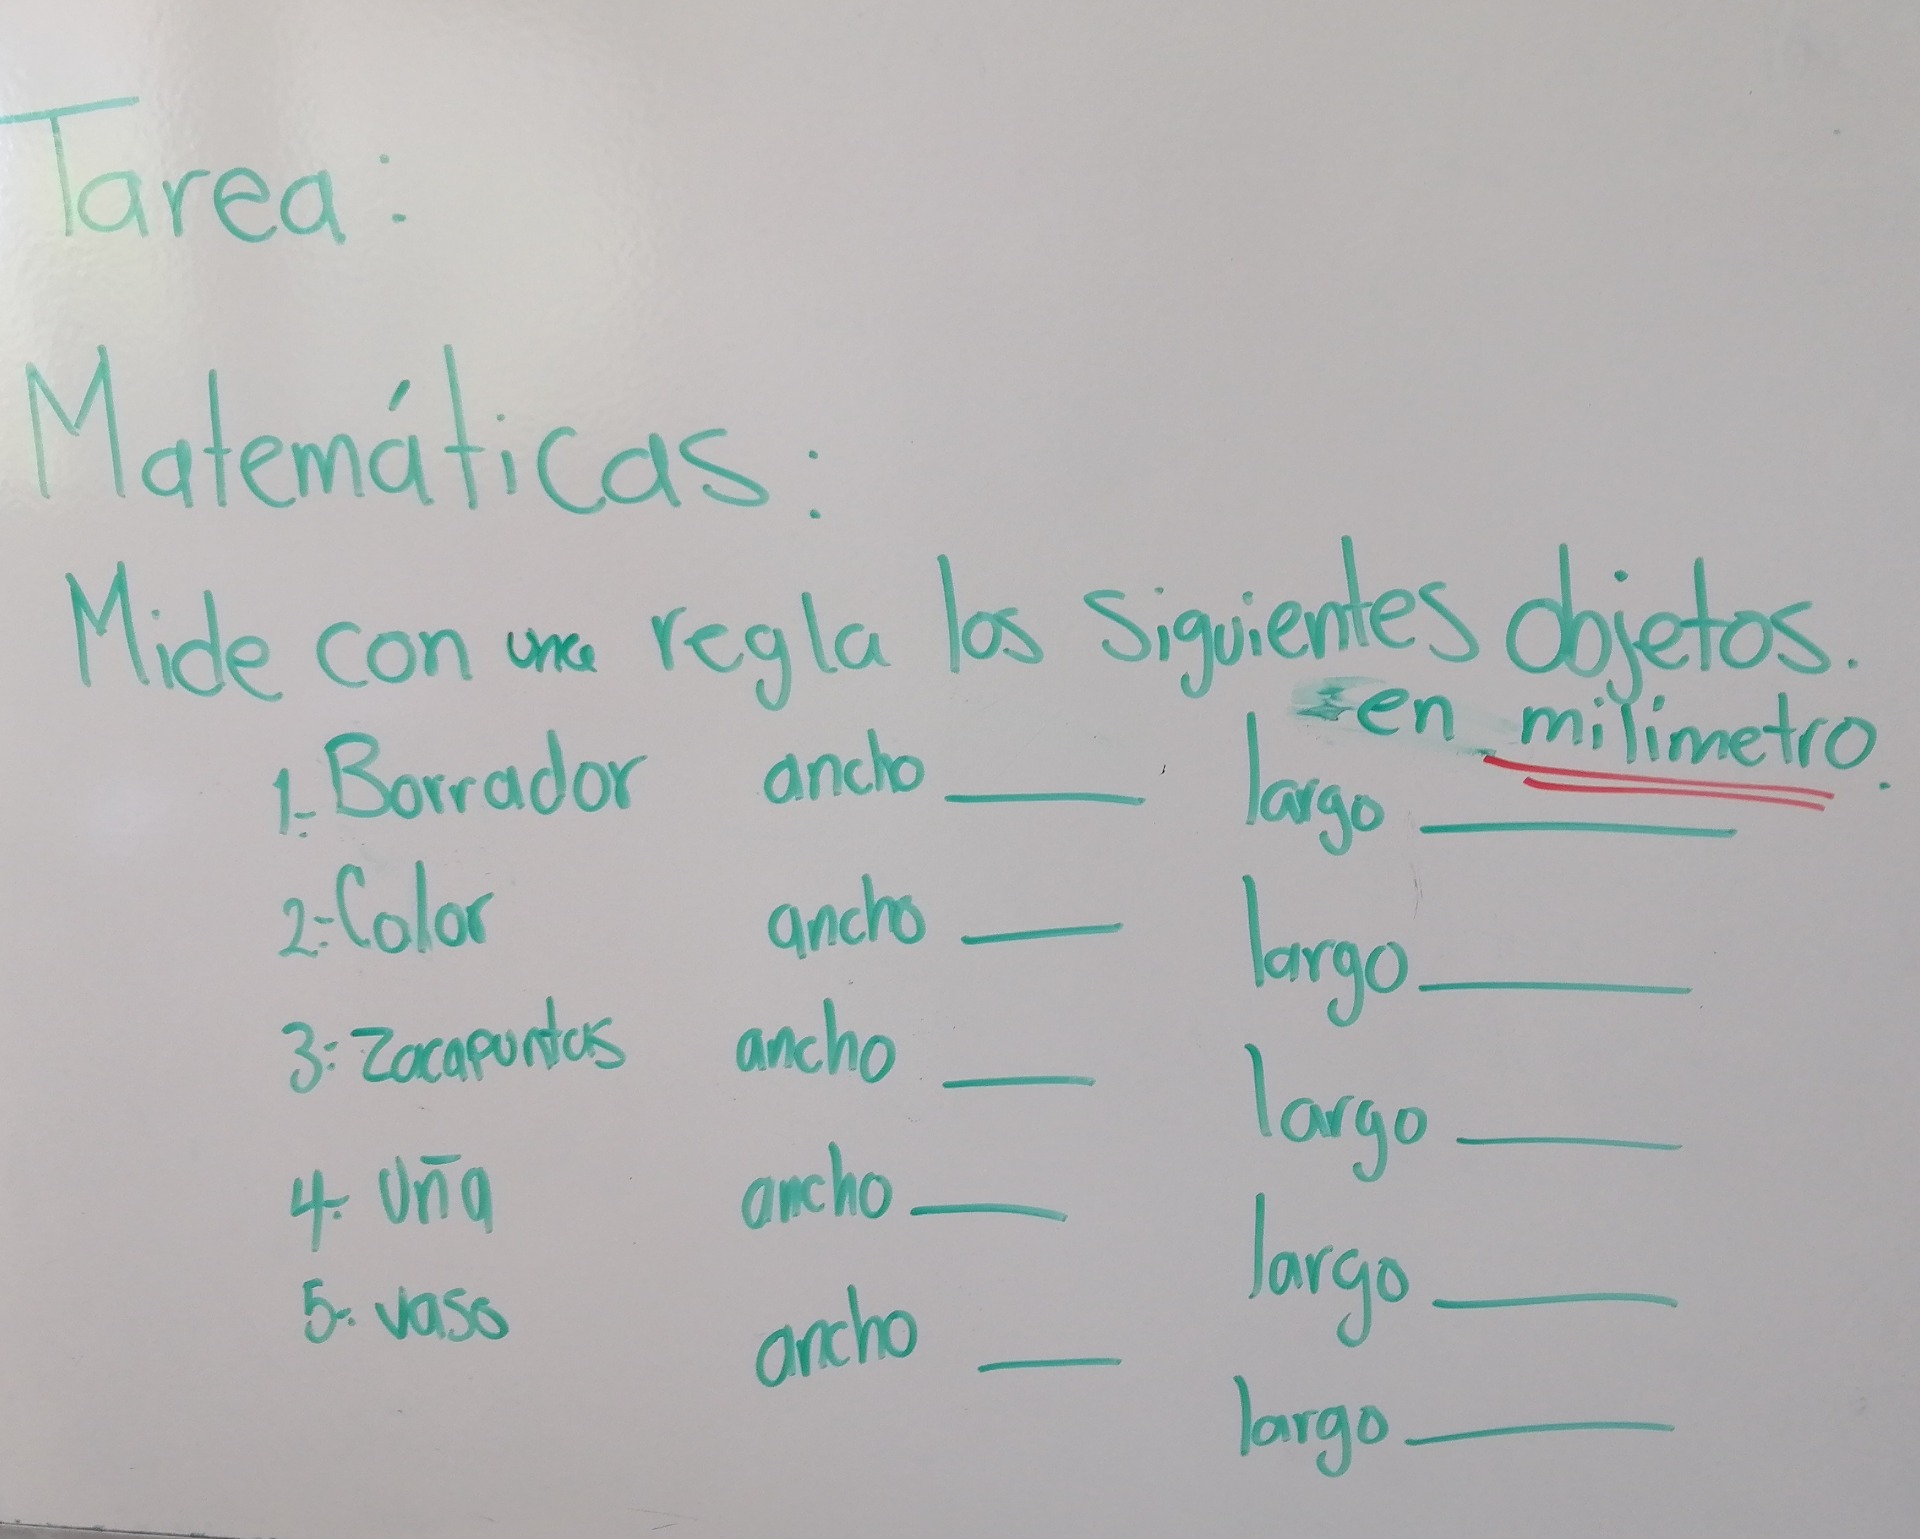 Tarea:
Matemáticas:
Mide con una regla los siguientes objetos.
en milímetro.
1.- Borrador ancho ____ largo ____
2.- Color ancho ____ largo ____
3.- Zacapuntas ancho ____ largo ____
4.- Uña ancho ____ largo ____
5.- vaso ancho ____ largo ____